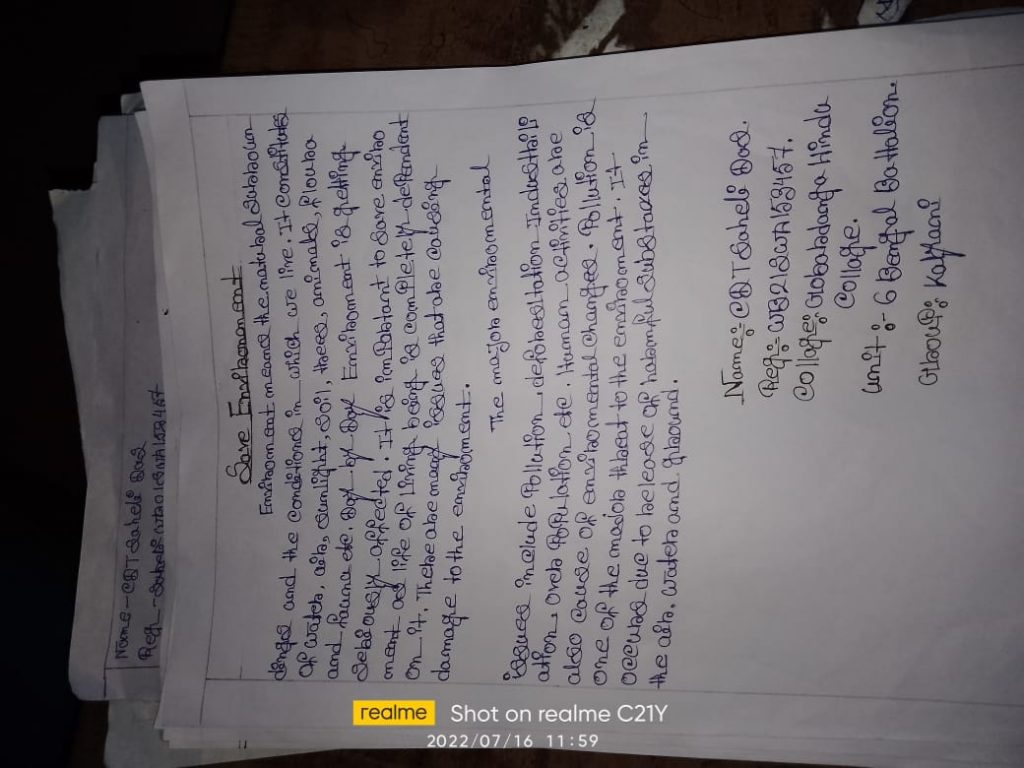 Name - CDT Saheli Das
Regn -
Save Enviroment
Enviroment means the natural surroun
dings and the conditions in which we live. It constitutes
of water, air, sunlight, soil, trees, animals, flowra
and fauna etc. Day by day Enviroment is getting
seriously affected. It is important to save enviro
ment as life of living being is completely dependant
on it. There are many issues that are causing
damage to the enviroment.
The major enviromental
issues include Pollution, deforestation Industriali
ation, over Population etc. Human activities are
also cause of enviromental changes. Pollution is
one of the major threat to the enviroment. It
occurs due to release of harmful substances in
the air, water and ground.
Name:- CDT Saheli Das.
Regn:- WB21SWA153457.
College:- Gobardanga Hindu
College.
Unit:- 6 Bengal Battalion.
Group:- Kalyani
realme Shot on realme C21Y
2022/07/16 11:59